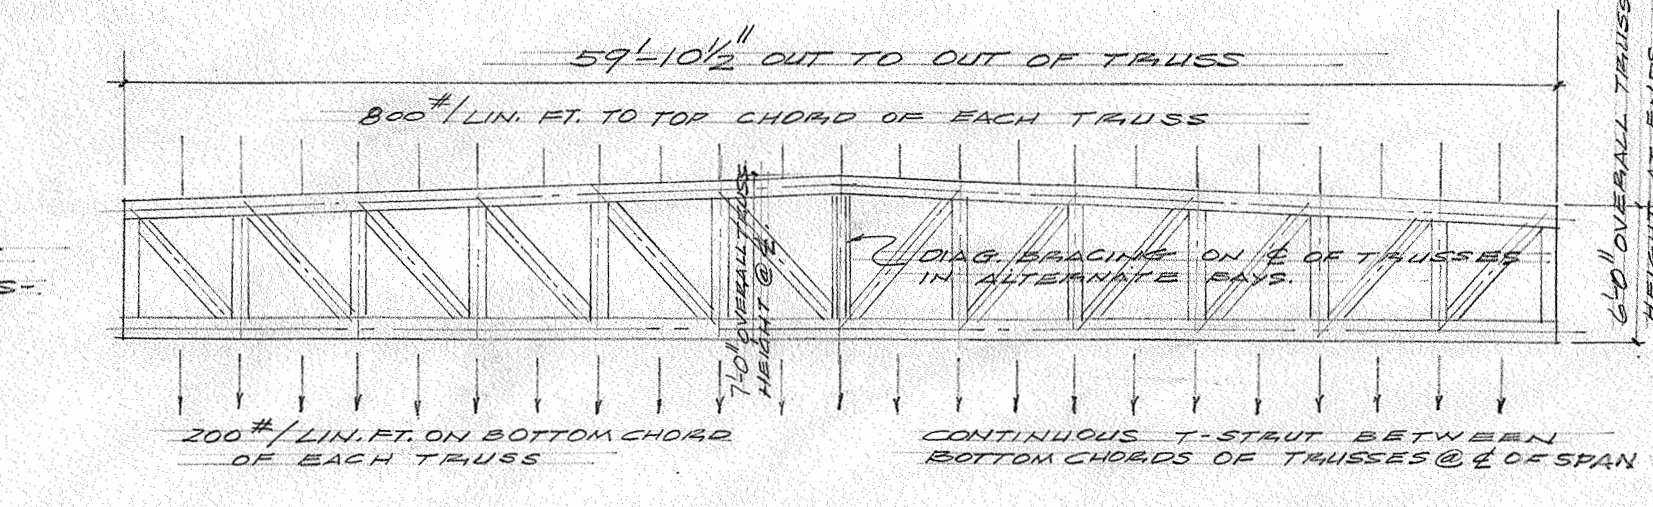 59'-10½" OUT TO OUT OF TRUSS
800#/LIN. FT. TO TOP CHORD OF EACH TRUSS
7'-0" OVERALL TRUSS
HEIGHT @ ℄.
DIAG. BRACING ON ℄ OF TRUSSES
IN ALTERNATE BAYS.
6'-0" OVERALL TRUSS
HEIGHT AT ENDS
S-
200#/LIN. FT. ON BOTTOM CHORD
OF EACH TRUSS
CONTINUOUS T-STRUT BETWEEN
BOTTOM CHORDS OF TRUSSES @ ℄ OF SPAN